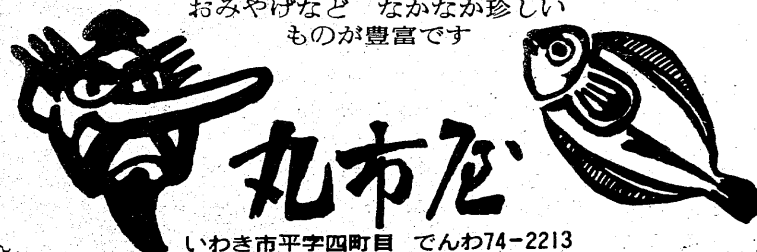 おみやげなど なかなか珍しい
ものが豊富です
丸市屋
いわき市平字四町目 でんわ74-2213